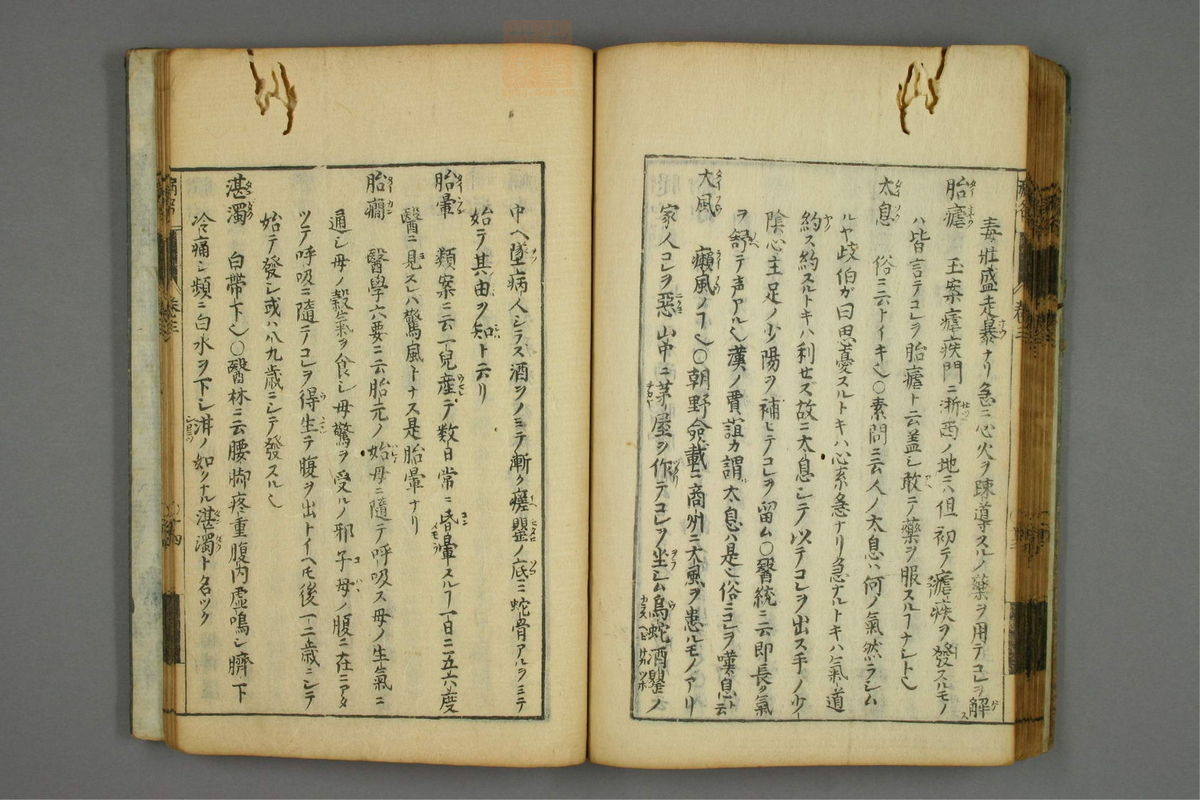 毒壮盛走暴ナリ急ニ心火ヲ踈導スルノ藥ヲ用テコレヲ解ス
胎瘧 玉案瘧疾門ニ浙西ノ地ニハ但初テ瘧疾ヲ發スルモノ
ハ皆言テコレヲ胎瘧ト云蓋シ敢テ藥ヲ服スルヿナシト
太息 俗ニ云トイキ也○素問ニ云人ノ太息ハ何ノ氣然ラシム
ルヤ歧伯カ曰思憂スルトキハ心系急ナリ急ナルトキハ氣道
約ス約スルトキハ利せズ故ニ太息シテ以テコレヲ出ス手ノ少
陰心主足ノ少陽ヲ補ヒテコレヲ留ム○醫統ニ云即長ク氣
ヲ舒テ声アル也漢ノ賈誼カ謂太息ハ是也俗ニコレヲ嘆息ト云
大風 癩風ノヿ也○朝野僉載ニ商州ニ大風ヲ患ルモノアリ
家人コレヲ惡山中ニ茅屋ヲ作テコレヲ坐シム烏蛇酒罌ノ
中ヘ墜病人シラス酒ヲノミテ漸ク瘥罌ノ底ニ蛇骨アルヲミテ
始テ其由ヲ知ト云リ
胎暈 類案ニ云一兒産テ数日常ニ昏暈スルヿ一日ニ五六度
醫ニ見スレハ驚風トナス是胎暈ナリ
胎癎 醫學六要ニ云胎元ノ始母ニ隨テ呼吸ス母ノ生氣ニ
通シ母ノ穀氣ヲ食シ母驚ヲ受ルノ邪子母ノ腹ニ在ニアタ
ツテ呼吸ニ隨テコレヲ得生テ腹ヲ出トイヘモ後一二歳ニシテ
始テ發シ或ハ八九歳ニシテ發スル也
湛濁 白帶下也○醫林ニ云腰脚疼重腹内虚鳴シ臍下
冷痛シ頻ニ白水ヲ下シ泔ノ如クナル湛濁ト名ツク